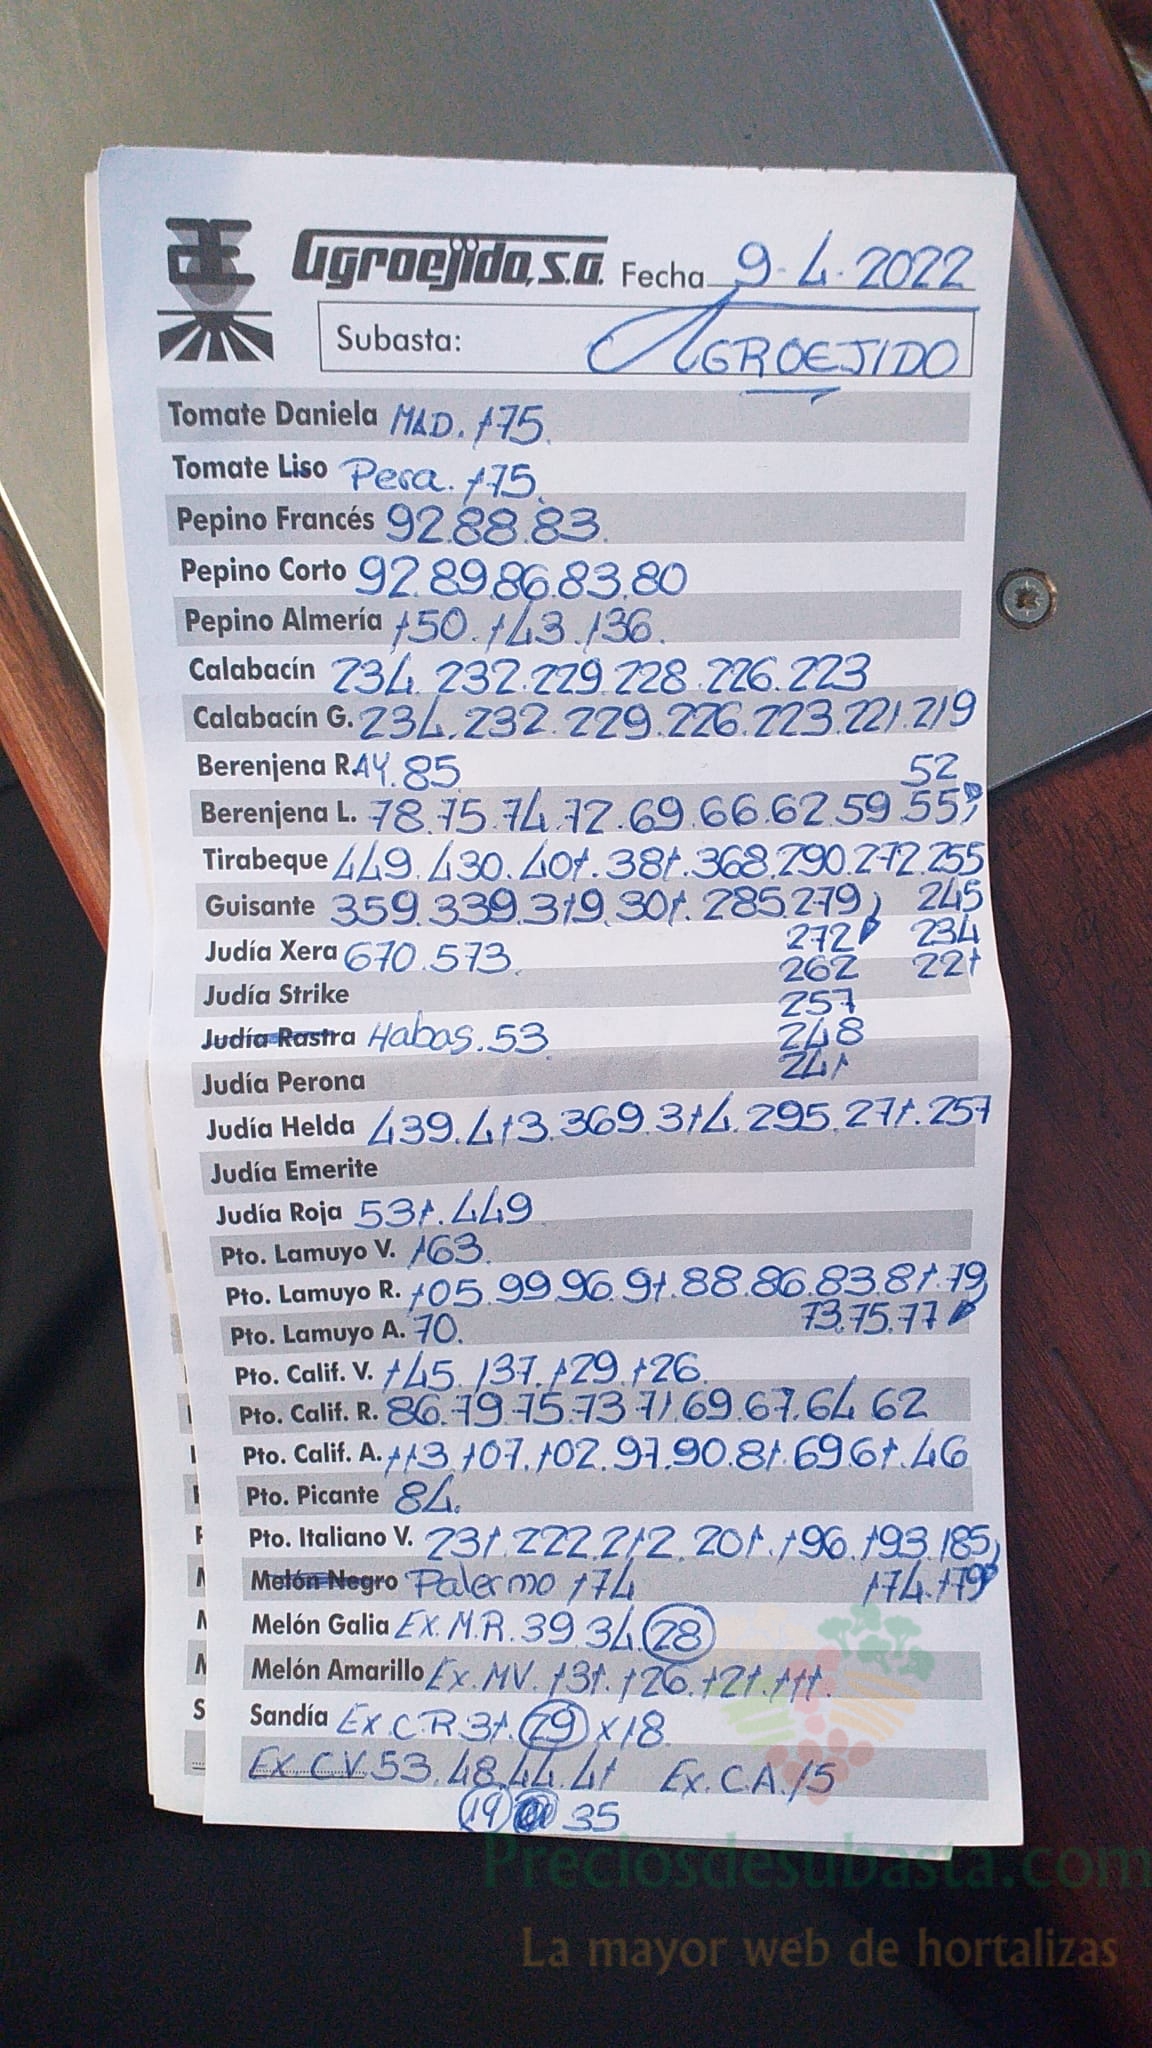 Agroejido, S.A. Fecha 9-4-2022
Subasta: AGROEJIDO
Tomate Daniela MAD. 175.
Tomate Liso Pera. 175.
Pepino Francés 92.88.83.
Pepino Corto 92.89.86.83.80
Pepino Almería 150.143.136.
Calabacín 234.232.229.228.226.223
Calabacín G. 234.232.229.226.223.221.219
Berenjena R.AY.85. 52
Berenjena L. 78.75.74.72.69.66.62.59.55
Tirabeque 449.430.401.381.368.290.272.255
Guisante 359.339.319.301.285.279 245
Judía Xera 670.573. 272 234
262 221
Judía Strike 257
Judía Rastra Habas.53 248
Judía Perona 241
Judía Helda 439.413.369.314.295.271.257
Judía Emerite
Judía Roja 531.449
Pto. Lamuyo V. 163.
Pto. Lamuyo R. 105.99.96.91.88.86.83.81.79
Pto. Lamuyo A. 70. 73.75.77
Pto. Calif. V. 145.137.129.126.
Pto. Calif. R. 86.79.75.73.71.69.67.64.62
Pto. Calif. A. 113.107.102.97.90.81.69.61.46
Pto. Picante 84.
Pto. Italiano V. 231.222.212.201.196.193.185
Melón Negro Palermo 174 174.179
Melón Galia Ex.M.R.39.34.28
Melón Amarillo Ex.MV.131.126.121.111.
Sandía Ex.C.R.31.29x18
Ex.C.V.53.48.44.41 Ex.C.A.15
19 35
Preciosdesubasta.com
La mayor web de hortalizas